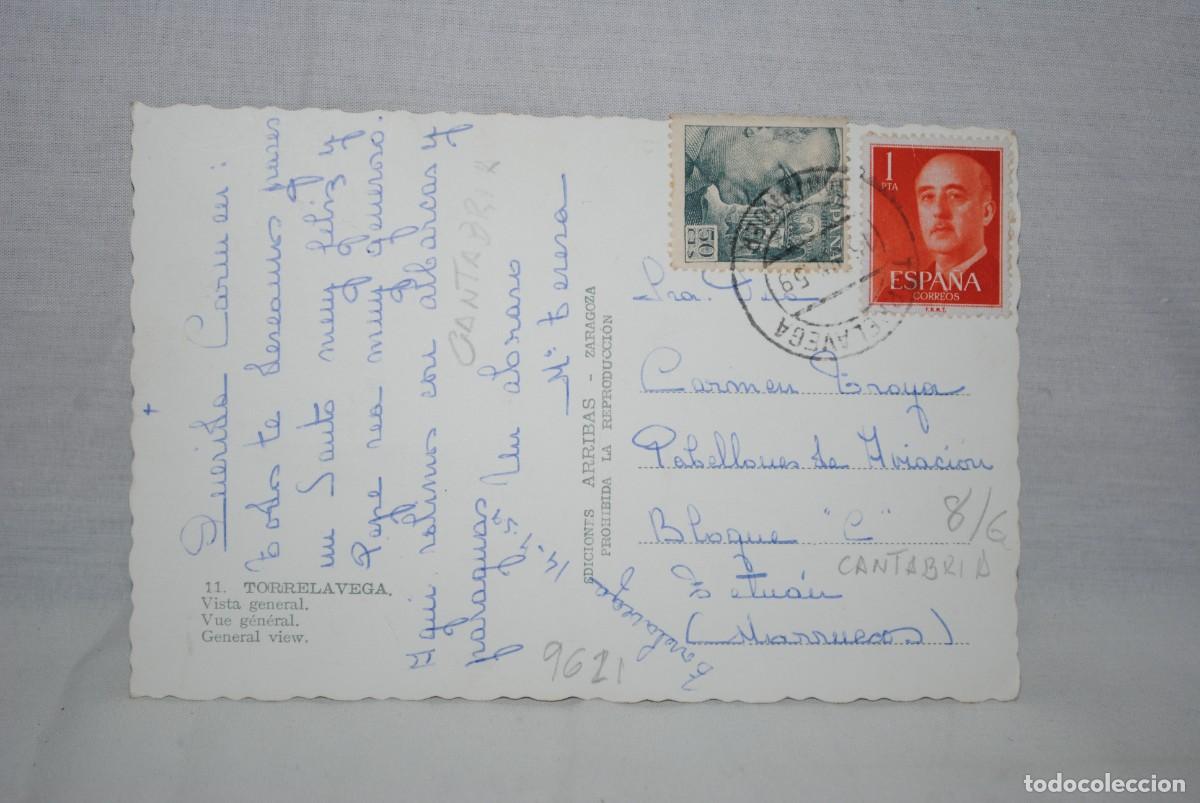 +
Querida Carmen:
todos te deseamos pases
un Santo muy feliz y
Pepe sea muy generoso.
Aquí salimos con albarcas y
paraguas Un abraso
Mª teresa
CANTABRIA
11. TORRELAVEGA.
Vista general.
Vue général.
General view.
EDICIONES ARRIBAS - ZARAGOZA
PROHIBIDA LA REPRODUCCIÓN
50 CTS
ESPAÑA
1
PTA
ESPAÑA
CORREOS
F.N.M.T.
TORRELAVEGA
59
Sra. Dña
Carmen Troya
Pabellones de Aviación
Bloque "C"
Tetuán
(Marruecos)
Torrelavega
8/6
CANTABRIA
9621
todocoleccion